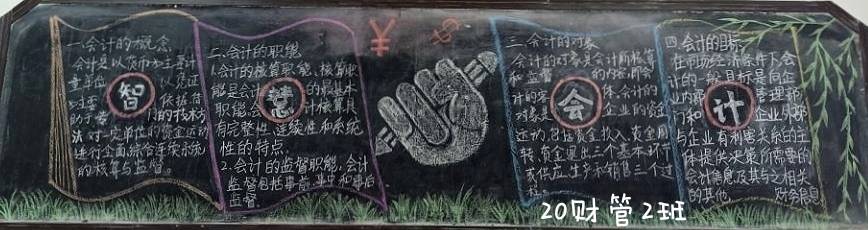 一.会计的概念
会计是以货币为主要计
量单位 以凭证
为主 依据 借
助于专 门的技术方
法 对一定单位的资金运动
进行全面 综合 连续 系统
的核算与监督
智
二.会计的职能
1.会计的核算职能 核算职
能是会计 的最基本
职能 会 计核算具
有完整性 连续性和系统
性的特点
2.会计的监督职能 会计
监督包括事前 事中和事后
监督
慧
¥
$
三.会计的对象
会计的对象是会计所核算
和监督 的内容 即会
计的客 体 会计的
对象是 企业的资
金运动 包括资金投入 资金周
转 资金退出三个基本环节
供应 生产和销售三个过
程
会
四.会计的目标
在市场经济条件下 会
计的一般目标是向企
业的 管理部
门和 企业外部
与企业有利害关系的主
体提供决策所需要的
会计信息及其与之相关
的其他 财务信息
计
20财管2班